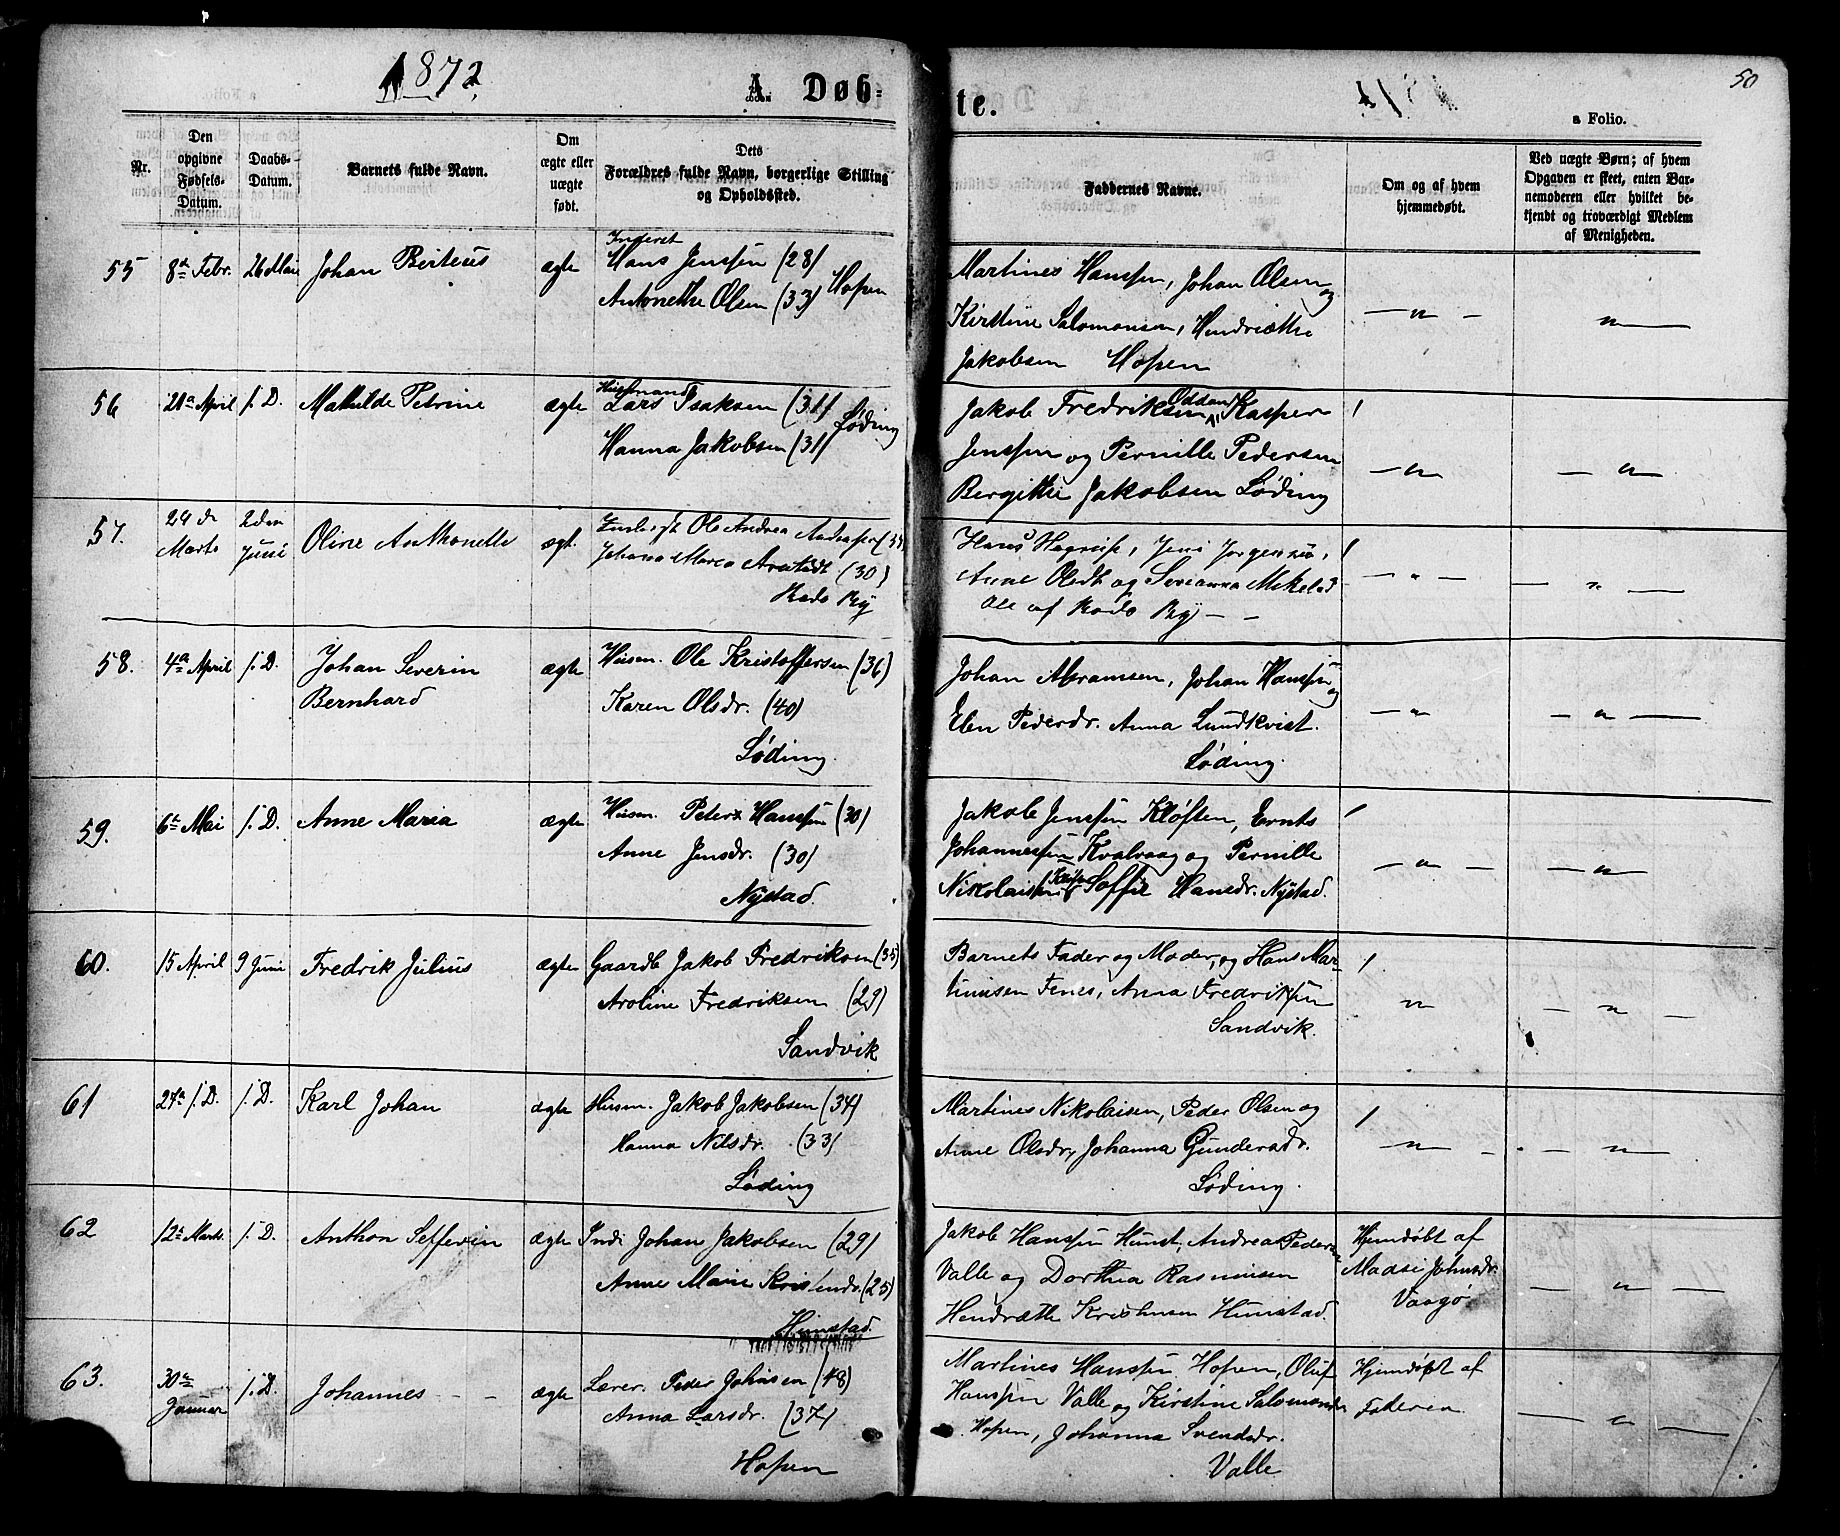 1872
A Døb-
te.
50
a Folio.
Nr.
Den opgivne Fødsels-Datum.
Daabs-Datum.
Barnets fulde Navn.
Om ægte eller uægte født.
Dets
Forældres fulde Navn, borgerlige Stilling
og Opholdssted.
Faddernes Navne.
Om og af hvem
hjemmedøbt.
Ved uægte Børn; af hvem
Opgaven er skeet, enten Bar-
nemoderen eller hvilket be-
kjendt og troværdigt Medlem
af Menigheden.
55 8de Febr. 26 Mai Johan Berteus ægte Inderst
Hans Jenssen (28)
Antonethe Olsen (33) Hopen
Martines Hanssen, Johan Olsen og
Kirstine Salomonsen, Hendriethe
Jakobsen Hopen
56 April s. D. Mathilde Petrine ægte Husmand
Lars Isaksen (31)
Hanna Jakobsen (31) Løding
Jakob Fredriksen Oddan, Kasper
Jenssen og Pernille Pedersen
Bergithe Jakobsen Løding
57. 24de Marts 2den Juni Oline Anthonette ægt.
Ole Andrea
Johanna Marea (30)
By
Hans Hagrup, Jens Jørgensen,
Anne Olsdt og
Ole af By
58. 4de April s. D. Johan Severin
Bernhard
ægte Husm. Ole Kristoffersen (36)
Karen Olsdr. (40)
Løding
Johan Abramsen, Johan Hanssen og
Elen Pedersdr. Anna Lundkvist.
Løding.
59. 6te Mai s. D. Anne Maria ægte Husm. Peter Hanssen (30)
Anne Jensdr. (30)
Nystad.
Jakob Jenssen Kløften, Ernts
Johannessen Kvalvaag og Pernille
Nikolaissen Soffie Hansdr. Nystad.
60. 15 April 9 Juni Fredrik Julius ægte Gaardb Jakob Fredriksen (35)
Aroline Fredriksen (29)
Sandvik
Barnets Fader og Moder, og Hans Mar-
tinusen Fenes, Anna Fredrikssen
Sandvik.
61 s. D. s. D. Karl Johan ægte Husm. Jakob Jakobsen (34)
Hanna Nilsdr. (33)
Løding
Martines Nikolaisen, Peder Olsen og
Anne Olsdr, Johanna Gundersdr.
Løding.
62 12te Marts s. D. Anthon Sefferin ægte Indi Johan Jakobsen (29)
Anne Marie Kristensdr. (25)
Himstad.
Jakob Hanssen Hunst, Andreas Pedersen
Valle og Dorthea Rasmusen
Hendræthe Kristensen Himstad.
Hjemdøbt af
Madsi Johnsdr.
Vaagø.
63. 30te Januar s. D. Johannes ægte Lærer. Peder Johnsen (48)
Anna Larsdr. (37)
Hopen
Martines Hanssen Hopen, Oluf
Hanssen Valle og Kirstine Salomonsdr
Hopen, Johanna Svendsdr.
Valle
Hjemdøbt af
Faderen